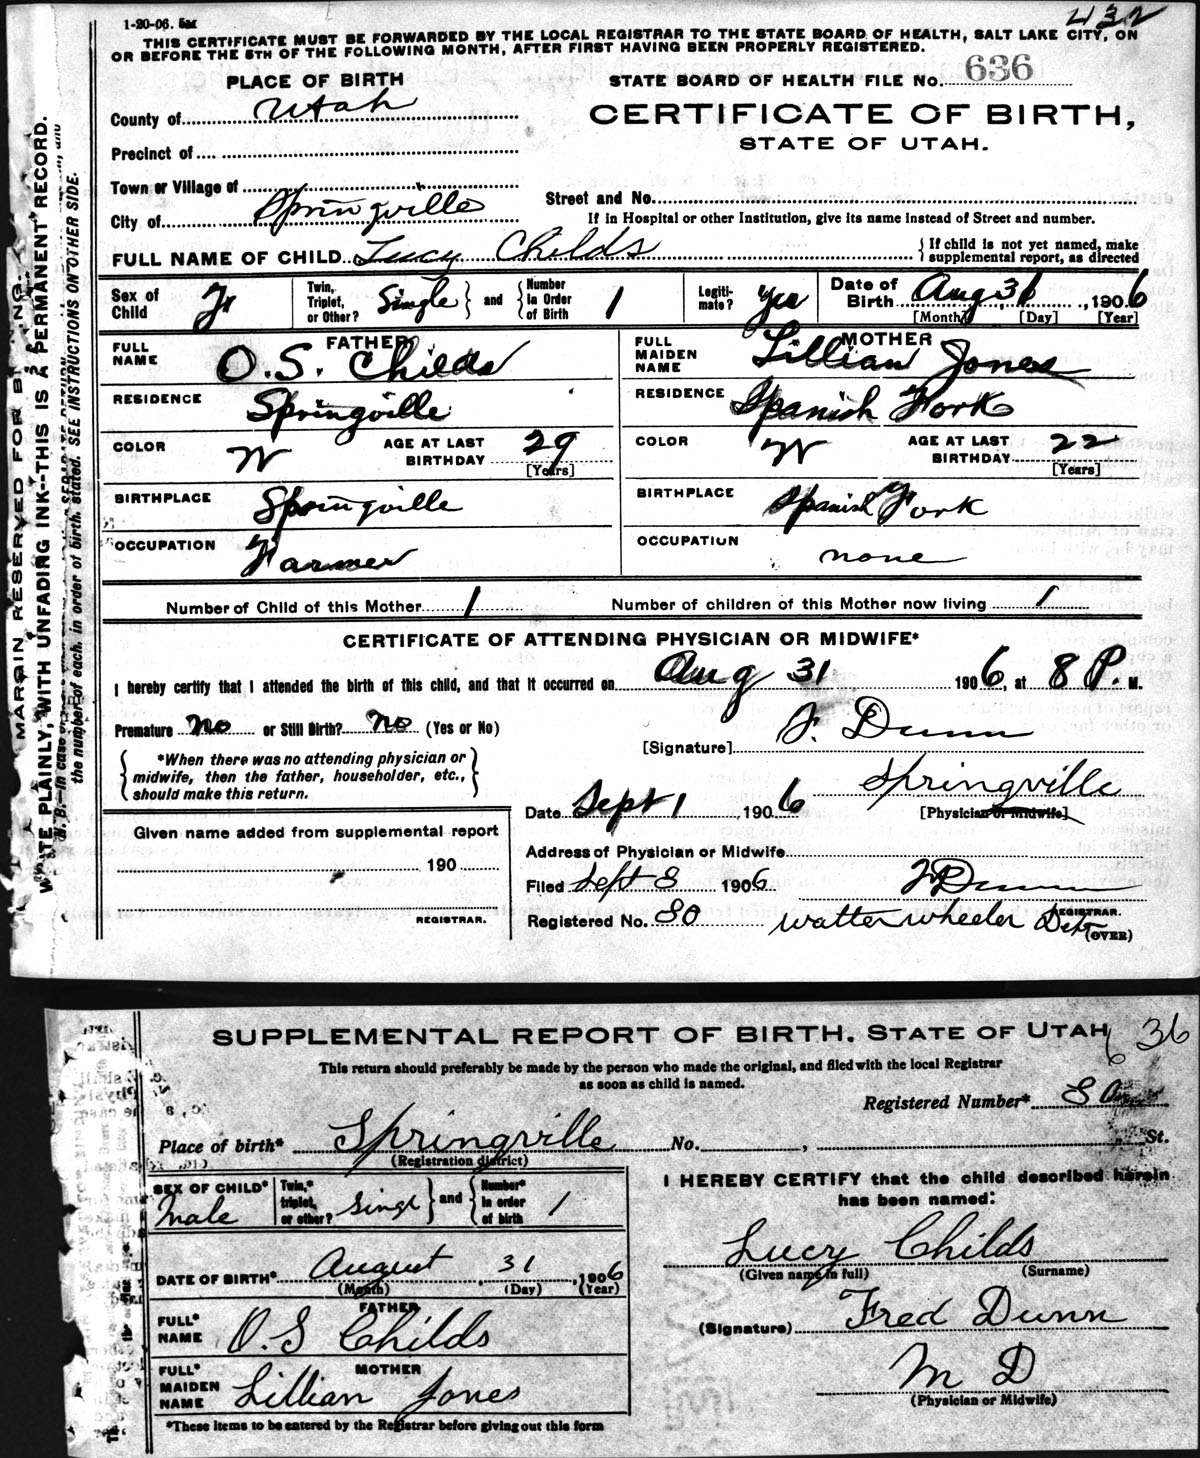 432
1-20-06. 5M
THIS CERTIFICATE MUST BE FORWARDED BY THE LOCAL REGISTRAR TO THE STATE BOARD OF HEALTH, SALT LAKE CITY, ON
OR BEFORE THE 5TH OF THE FOLLOWING MONTH, AFTER FIRST HAVING BEEN PROPERLY REGISTERED.
PLACE OF BIRTH
STATE BOARD OF HEALTH FILE No. 636
County of Utah
CERTIFICATE OF BIRTH,
STATE OF UTAH.
Precinct of
Town or Village of
Street and No.
City of Springville
If in Hospital or other Institution, give its name instead of Street and number.
FULL NAME OF CHILD Lucy Childs
If child is not yet named, make
supplemental report, as directed
Sex of Child F Twin, Triplet, or Other? Single and Number in Order of Birth 1 Legiti-mate? Yes Date of Birth Aug 31, 1906
[Month] [Day] [Year]
FATHER
FULL NAME O. S. Childs
MOTHER
FULL MAIDEN NAME Lillian Jones
RESIDENCE Springville
RESIDENCE Spanish Fork
COLOR W AGE AT LAST BIRTHDAY 29 [Years]
COLOR W AGE AT LAST BIRTHDAY 22 [Years]
BIRTHPLACE Springville
BIRTHPLACE Spanish Fork
OCCUPATION Farmer
OCCUPATION none
Number of Child of this Mother 1 Number of children of this Mother now living 1
CERTIFICATE OF ATTENDING PHYSICIAN OR MIDWIFE*
I hereby certify that I attended the birth of this child, and that it occurred on Aug 31 1906, at 8 P. M.
Premature no or Still Birth? no (Yes or No)
[Signature] F. Dunn
*When there was no attending physician or
midwife, then the father, householder, etc.,
should make this return.
Springville
Date Sept 1, 1906 [Physician or Midwife]
Given name added from supplemental report
190
REGISTRAR.
Address of Physician or Midwife
Filed Sept 8 1906 F Dunn
Registered No. 80 Walter Wheeler Dept REGISTRAR.
(OVER)
MARGIN RESERVED FOR
WRITE PLAINLY, WITH UNFADING INK--THIS IS A PERMANENT RECORD.
the number of each, in order of birth, stated. SEE INSTRUCTIONS ON OTHER SIDE.
SUPPLEMENTAL REPORT OF BIRTH. STATE OF UTAH
636
This return should preferably be made by the person who made the original, and filed with the local Registrar
as soon as child is named.
Registered Number* 80
Place of birth* Springville No. , St.
(Registration district)
SEX OF CHILD* Male Twin,* triplet, or other? Singl and Number* in order of birth 1
I HEREBY CERTIFY that the child described herein
has been named:
Lucy Childs
(Given name in full) (Surname)
DATE OF BIRTH* August 31, 1906
(Month) (Day) (Year)
FATHER
FULL* NAME O. S Childs
(Signature) Fred Dunn
MOTHER
FULL* MAIDEN NAME Lillian Jones
M D
(Physician or Midwife)
*These items to be entered by the Registrar before giving out this form